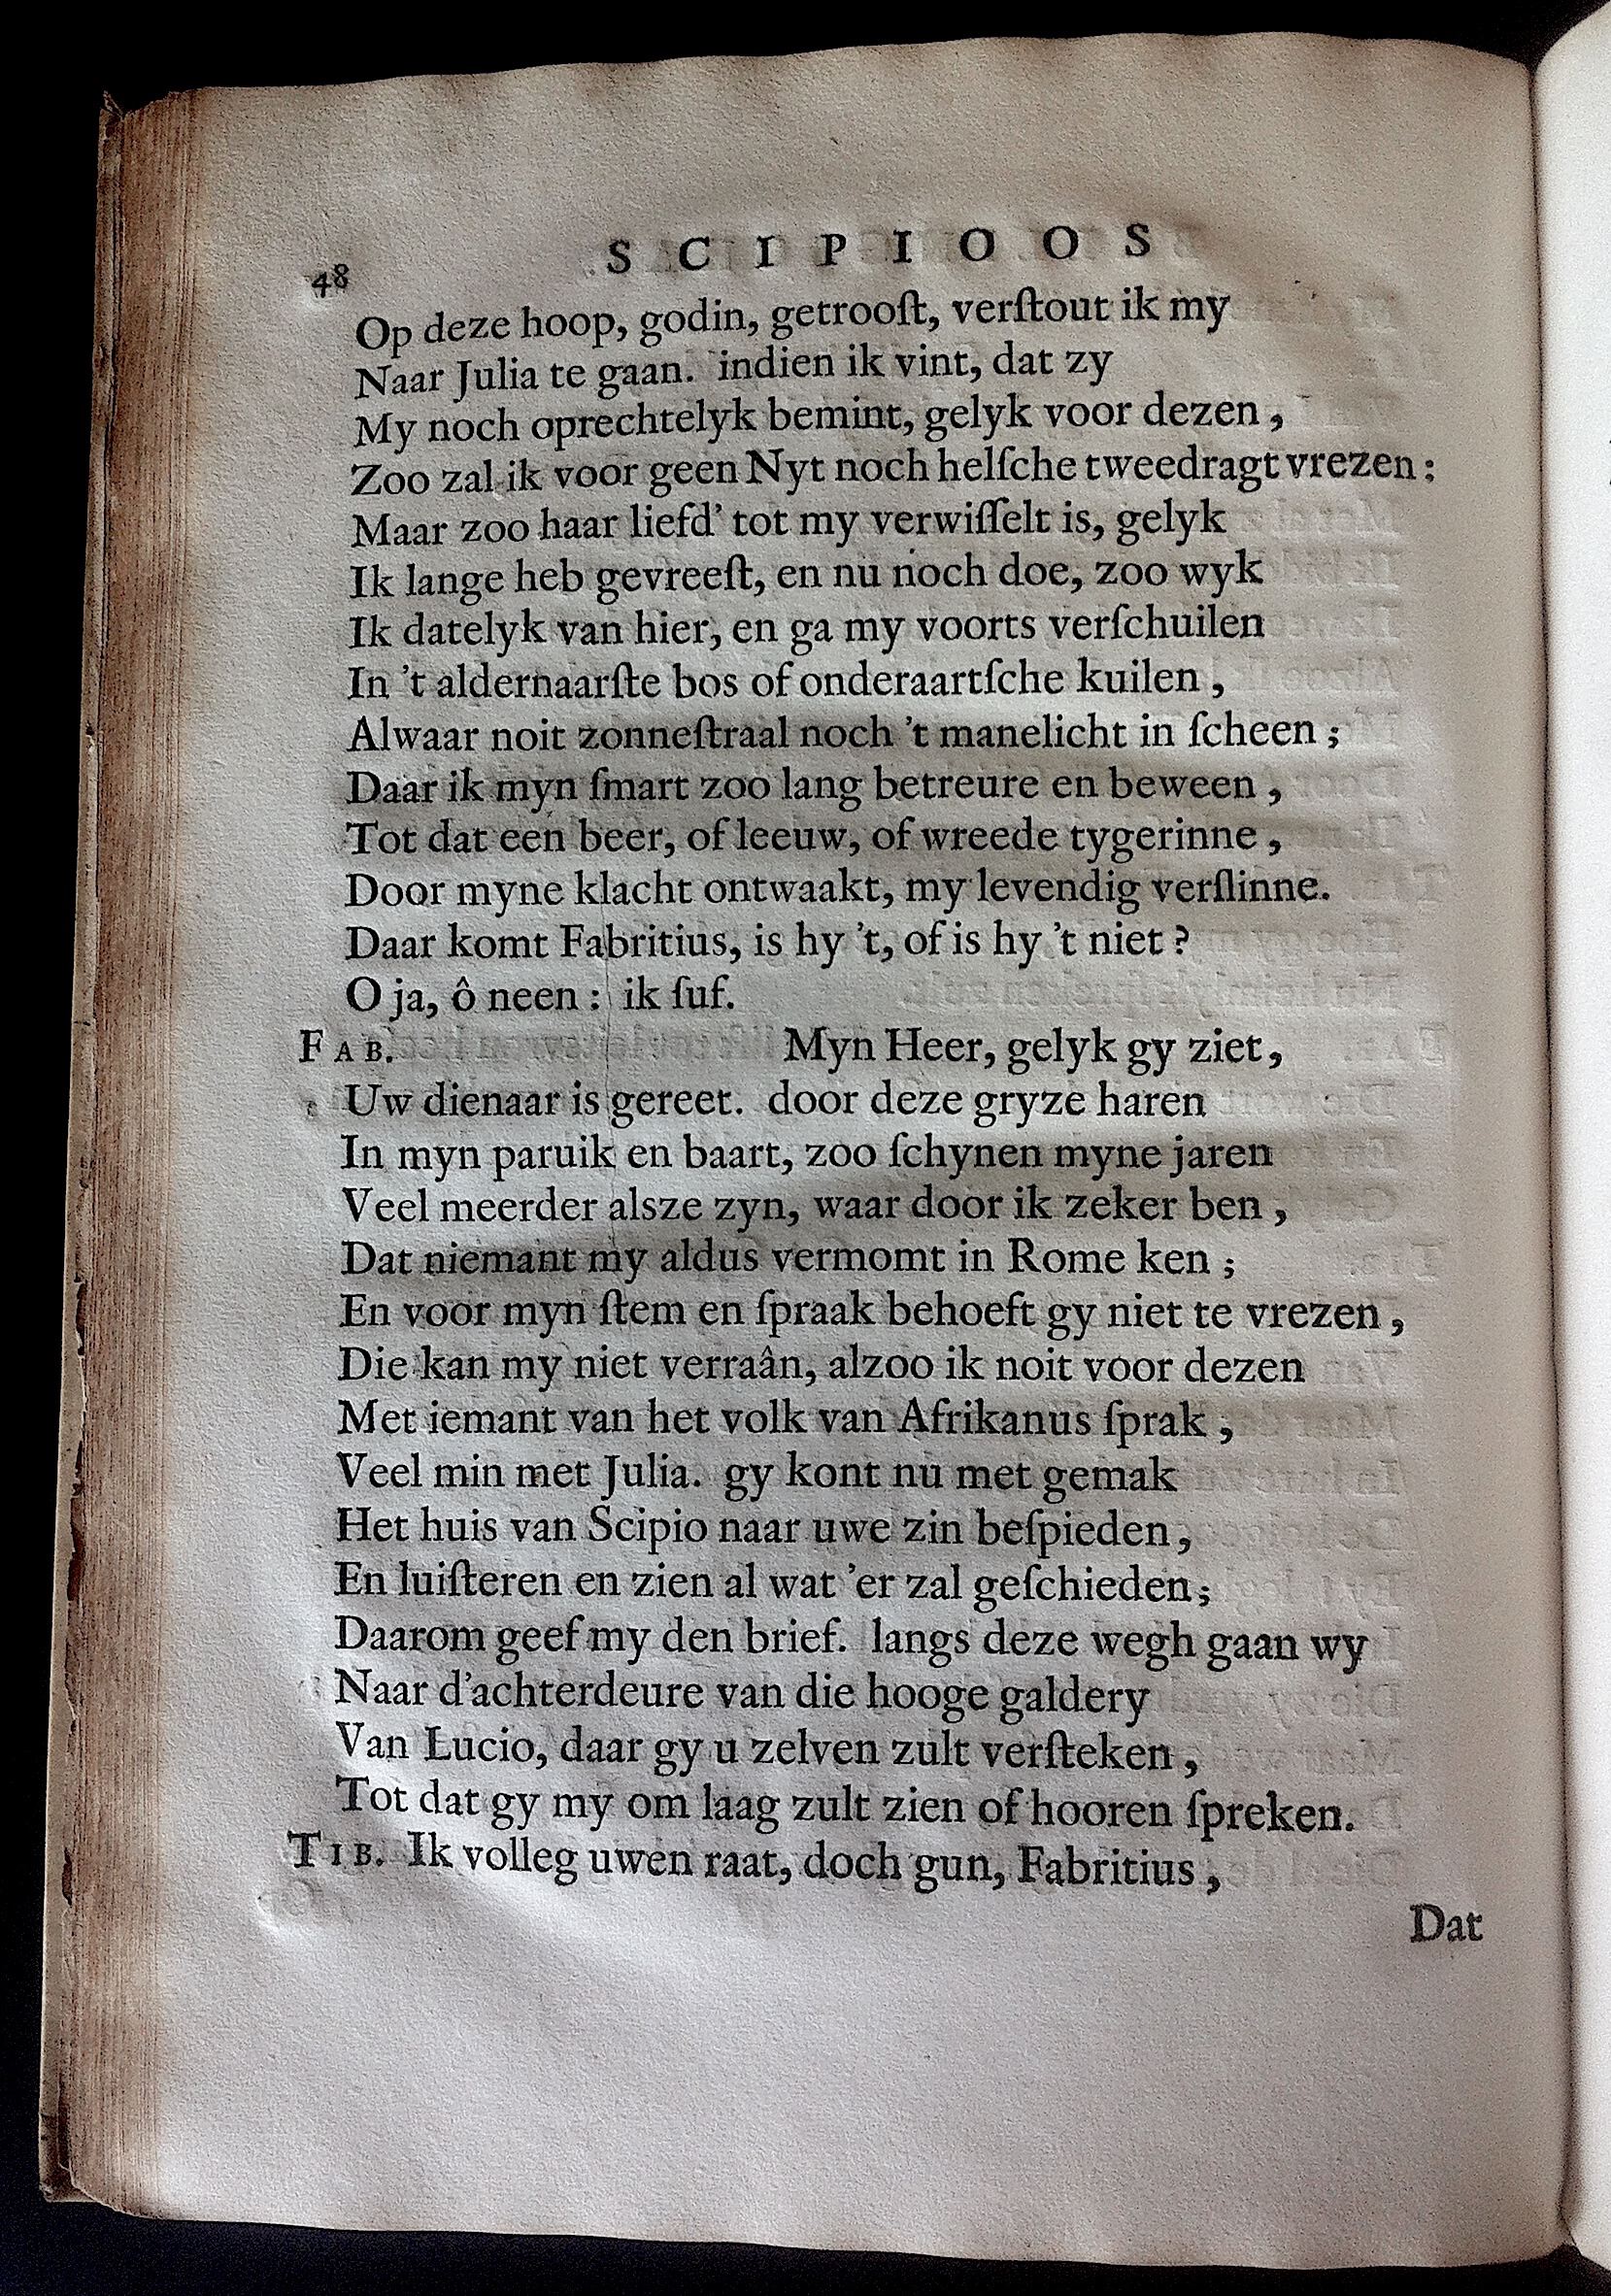 48
S C I P I O O S
Op deze hoop, godin, getrooſt, verſtout ik my
Naar Julia te gaan. indien ik vint, dat zy
My noch oprechtelyk bemint, gelyk voor dezen,
Zoo zal ik voor geen Nyt noch helſche tweedragt vrezen:
Maar zoo haar liefd' tot my verwiſſelt is, gelyk
Ik lange heb gevreeſt, en nu noch doe, zoo wyk
Ik datelyk van hier, en ga my voorts verſchuilen
In 't aldernaarſte bos of onderaartſche kuilen,
Alwaar noit zonneſtraal noch 't manelicht in ſcheen;
Daar ik myn ſmart zoo lang betreure en beween,
Tot dat een beer, of leeuw, of wreede tygerinne,
Door myne klacht ontwaakt, my levendig verſlinne.
Daar komt Fabritius, is hy 't, of is hy 't niet?
O ja, ô neen: ik ſuf.
FAB. Myn Heer, gelyk gy ziet,
Uw dienaar is gereet. door deze gryze haren
In myn paruik en baart, zoo ſchynen myne jaren
Veel meerder alsze zyn, waar door ik zeker ben,
Dat niemant my aldus vermomt in Rome ken;
En voor myn ſtem en ſpraak behoeft gy niet te vrezen,
Die kan my niet verraân, alzoo ik noit voor dezen
Met iemant van het volk van Afrikanus ſprak,
Veel min met Julia. gy kont nu met gemak
Het huis van Scipio naar uwe zin beſpieden,
En luiſteren en zien al wat 'er zal geſchieden;
Daarom geef my den brief. langs deze wegh gaan wy
Naar d'achterdeure van die hooge galdery
Van Lucio, daar gy u zelven zult verſteken,
Tot dat gy my om laag zult zien of hooren ſpreken.
TIB. Ik volleg uwen raat, doch gun, Fabritius,
Dat